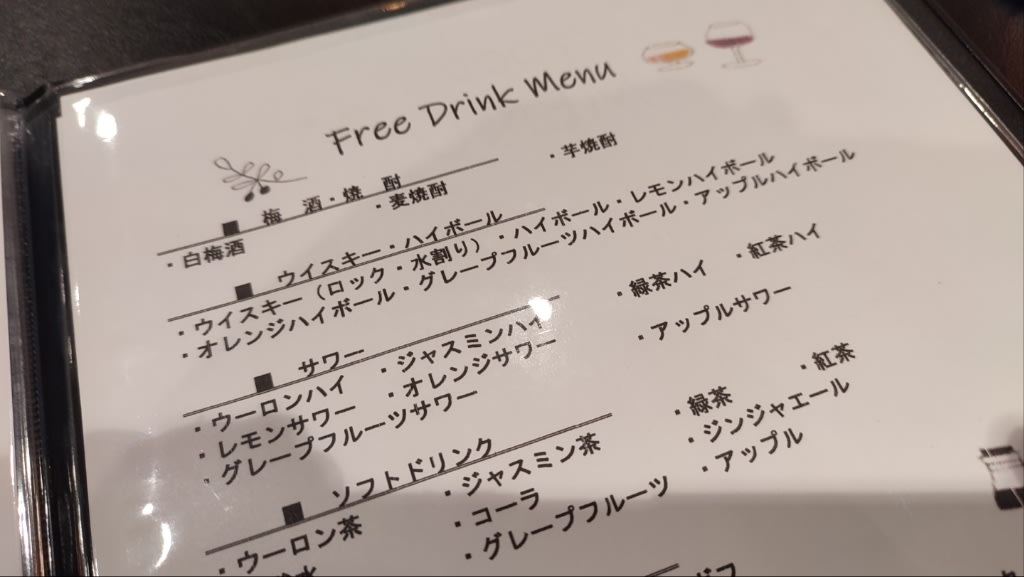 Free Drink Menu
■ 梅 酒・焼 酎
・白梅酒 ・麦焼酎 ・芋焼酎
■ ウイスキー・ハイボール
・ウイスキー（ロック・水割り）・ハイボール・レモンハイボール
・オレンジハイボール・グレープフルーツハイボール・アップルハイボール
■ サワー
・ウーロンハイ ・ジャスミンハイ ・緑茶ハイ ・紅茶ハイ
・レモンサワー ・オレンジサワー ・アップルサワー
・グレープフルーツサワー
■ ソフトドリンク
・ウーロン茶 ・ジャスミン茶 ・緑茶 ・紅茶
・コーラ ・ジンジャエール
・グレープフルーツ ・アップル